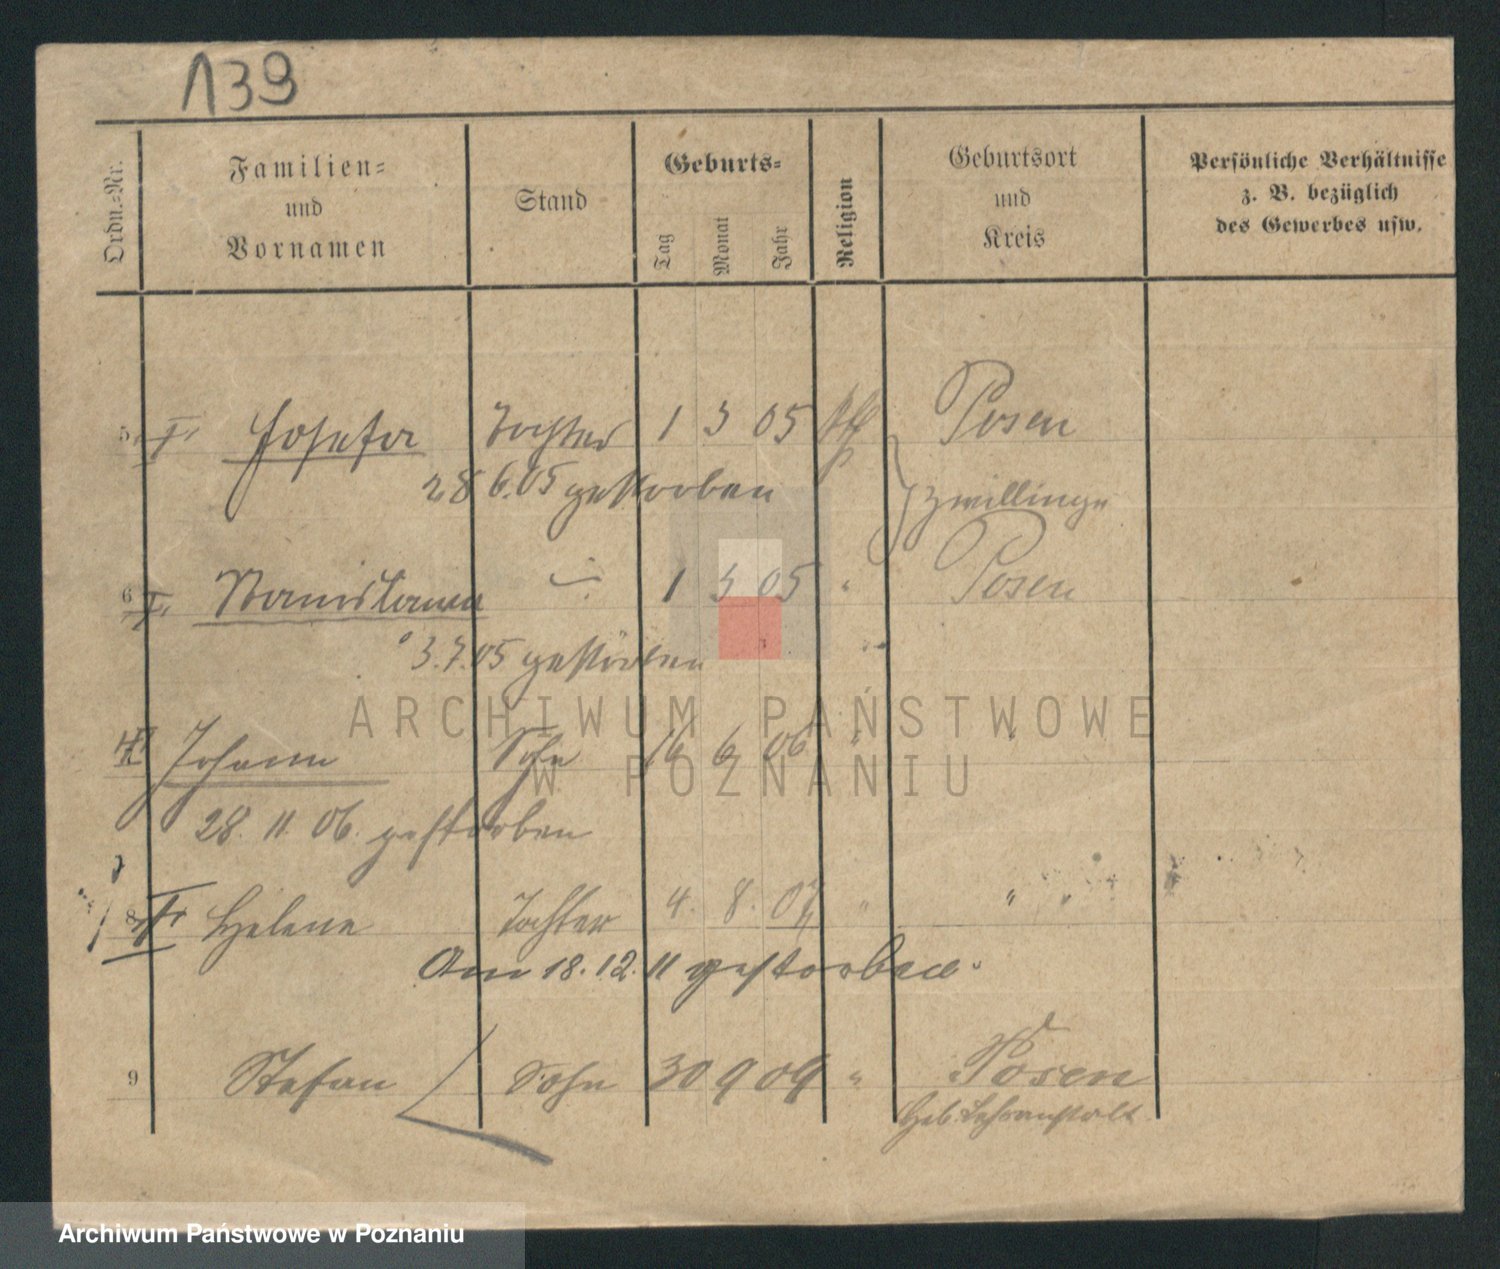 139
Ordn.-Nr.
Familien-
und
Vornamen
Stand
Geburts-
Tag
Monat
Jahr
Religion
Geburtsort
und
Kreis
Persönliche Verhältnisse
z. B. bezüglich
des Gewerbes usw.
5 Josefa Tochter 1 3 05 Posen
28 6. 05 gestorben Zwillinge
6 Stanislawa 1 3 05 " Posen
3. 7. 05 gestorben
ARCHIWUM PAŃSTWOWE
W POZNANIU
Johann Sohn 16 6 06 " "
28. 11. 06. gestorben
8 Helene Tochter 4. 8. 07 " " "
Am 18. 12. 11 gestorben.
9 Stefan Sohn 30 9 09 " Posen
Geb. Lehranstalt
Archiwum Państwowe w Poznaniu